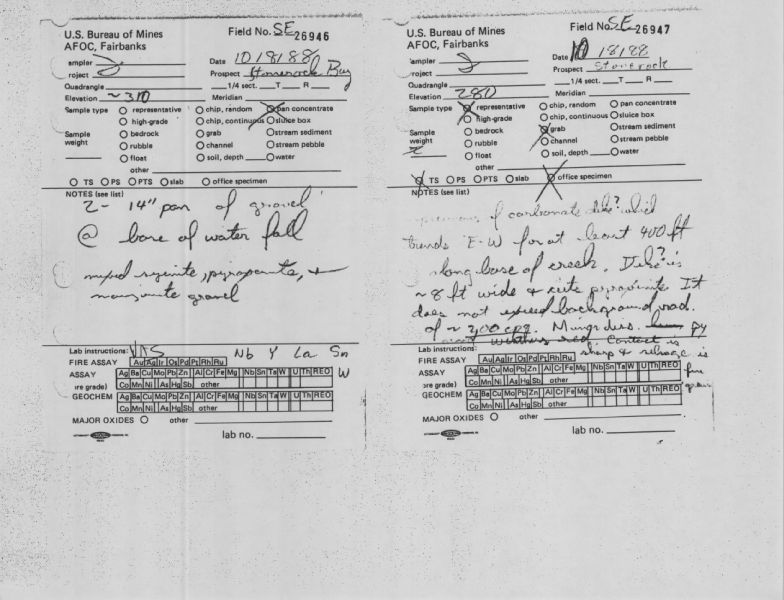 U.S. Bureau of Mines
AFOC, Fairbanks
Field No. SE 26946
ampler
roject
Date 10/8/88
Prospect Stonerock Bay
Quadrangle
1/4 sect. T R
Elevation ~310
Meridian
Sample type
representative
high-grade
chip, random
chip, continuous
pan concentrate
sluice box
Sample
weight
bedrock
rubble
float
grab
channel
soil, depth
stream sediment
stream pebble
water
other
TS PS PTS slab office specimen
NOTES (see list)
2- 14" pan of gravel
@ base of water fall
mixed syenite, pyroxenite, +
monzonite gravel
Lab instructions:
Nb Y La Sn
FIRE ASSAY Au Ag Ir Os Pd Pt Rh Ru
ASSAY Ag Ba Cu Mo Pb Zn Al Cr Fe Mg Nb Sn Ta W U Th REO W
(ore grade) Co Mn Ni As Hg Sb other
GEOCHEM Ag Ba Cu Mo Pb Zn Al Cr Fe Mg Nb Sn Ta W U Th REO
Co Mn Ni As Hg Sb other
MAJOR OXIDES other
lab no.
U.S. Bureau of Mines
AFOC, Fairbanks
Field No. SE 26947
ampler
roject
Date 10/8/88
Prospect Stonerock
Quadrangle
1/4 sect. T R
Elevation 280
Meridian
Sample type
representative
high-grade
chip, random
chip, continuous
pan concentrate
sluice box
Sample
weight
bedrock
rubble
float
grab
channel
soil, depth
stream sediment
stream pebble
water
other
TS PS PTS slab office specimen
NOTES (see list)
of carbonate dike? which
trends E-W for at least 400 ft
along base of creek. Dike? is
~8 ft wide + cuts pyroxenite. It
does not exceed background rad.
of ~200 cps. py
weathers red. Contact is
sharp + is
Lab instructions:
FIRE ASSAY Au Ag Ir Os Pd Pt Rh Ru
ASSAY Ag Ba Cu Mo Pb Zn Al Cr Fe Mg Nb Sn Ta W U Th REO fine
(ore grade) Co Mn Ni As Hg Sb other
GEOCHEM Ag Ba Cu Mo Pb Zn Al Cr Fe Mg Nb Sn Ta W U Th REO
Co Mn Ni As Hg Sb other
MAJOR OXIDES other
lab no.